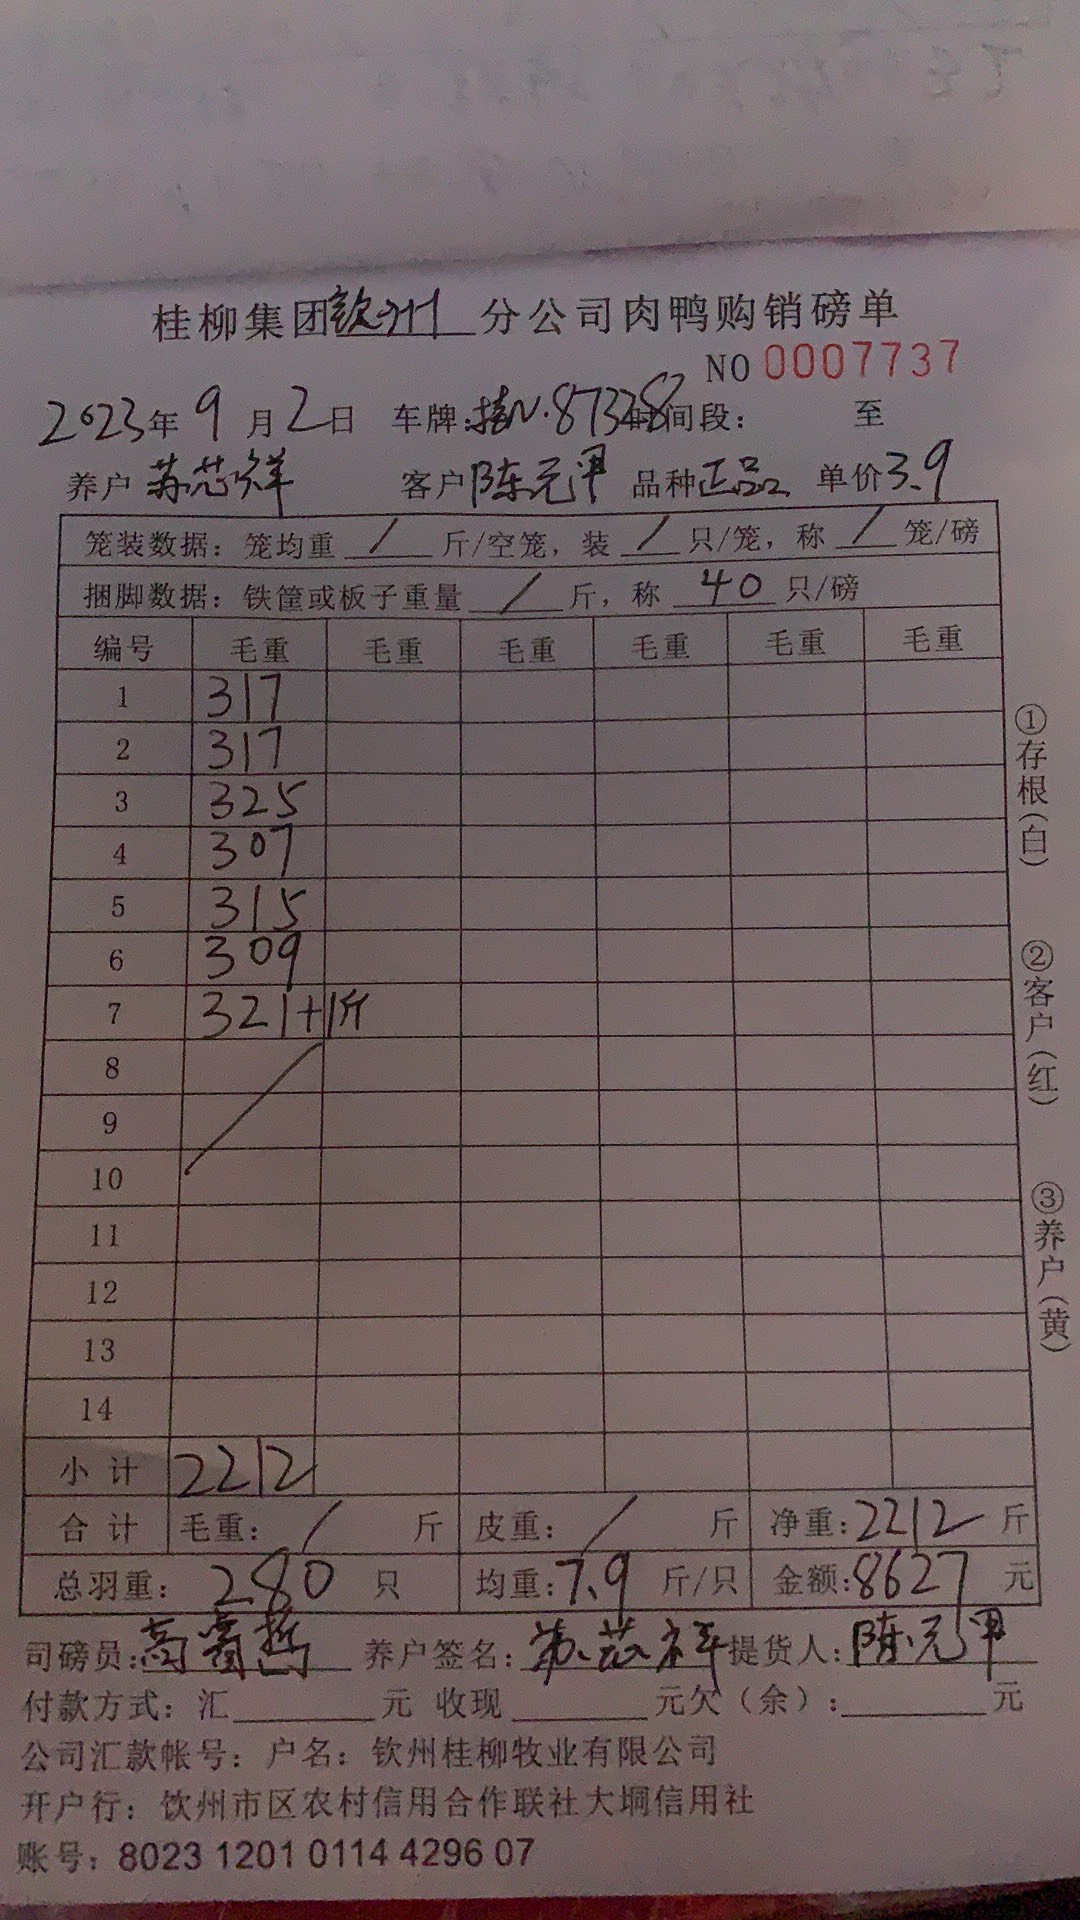 桂柳集团钦州分公司肉鸭购销磅单
NO 0007737
2023年9月2日 车牌:桂N·87328 时间段: 至
养户 苏芯祥 客户 陈元甲 品种 正品 单价 3.9
笼装数据:笼均重 / 斤/空笼,装 / 只/笼,称 / 笼/磅
捆脚数据:铁筐或板子重量 / 斤,称 40 只/磅
编号 毛重 毛重 毛重 毛重 毛重 毛重
1 317
2 317
3 325
4 307
5 315
6 309
7 321+1斤
8
9
10
11
12
13
14
小计 2212
合计 毛重: / 斤 皮重: / 斤 净重:2212斤
总羽重:280 只 均重:7.9 斤/只 金额:8627 元
司磅员:高 养户签名:苏芯祥 提货人:陈元甲
付款方式:汇 元 收现 元欠(余): 元
公司汇款帐号:户名:钦州桂柳牧业有限公司
开户行:饮州市区农村信用合作联社大垌信用社
账号:8023 1201 0114 4296 07
①存根(白)
②客户(红)
③养户(黄)